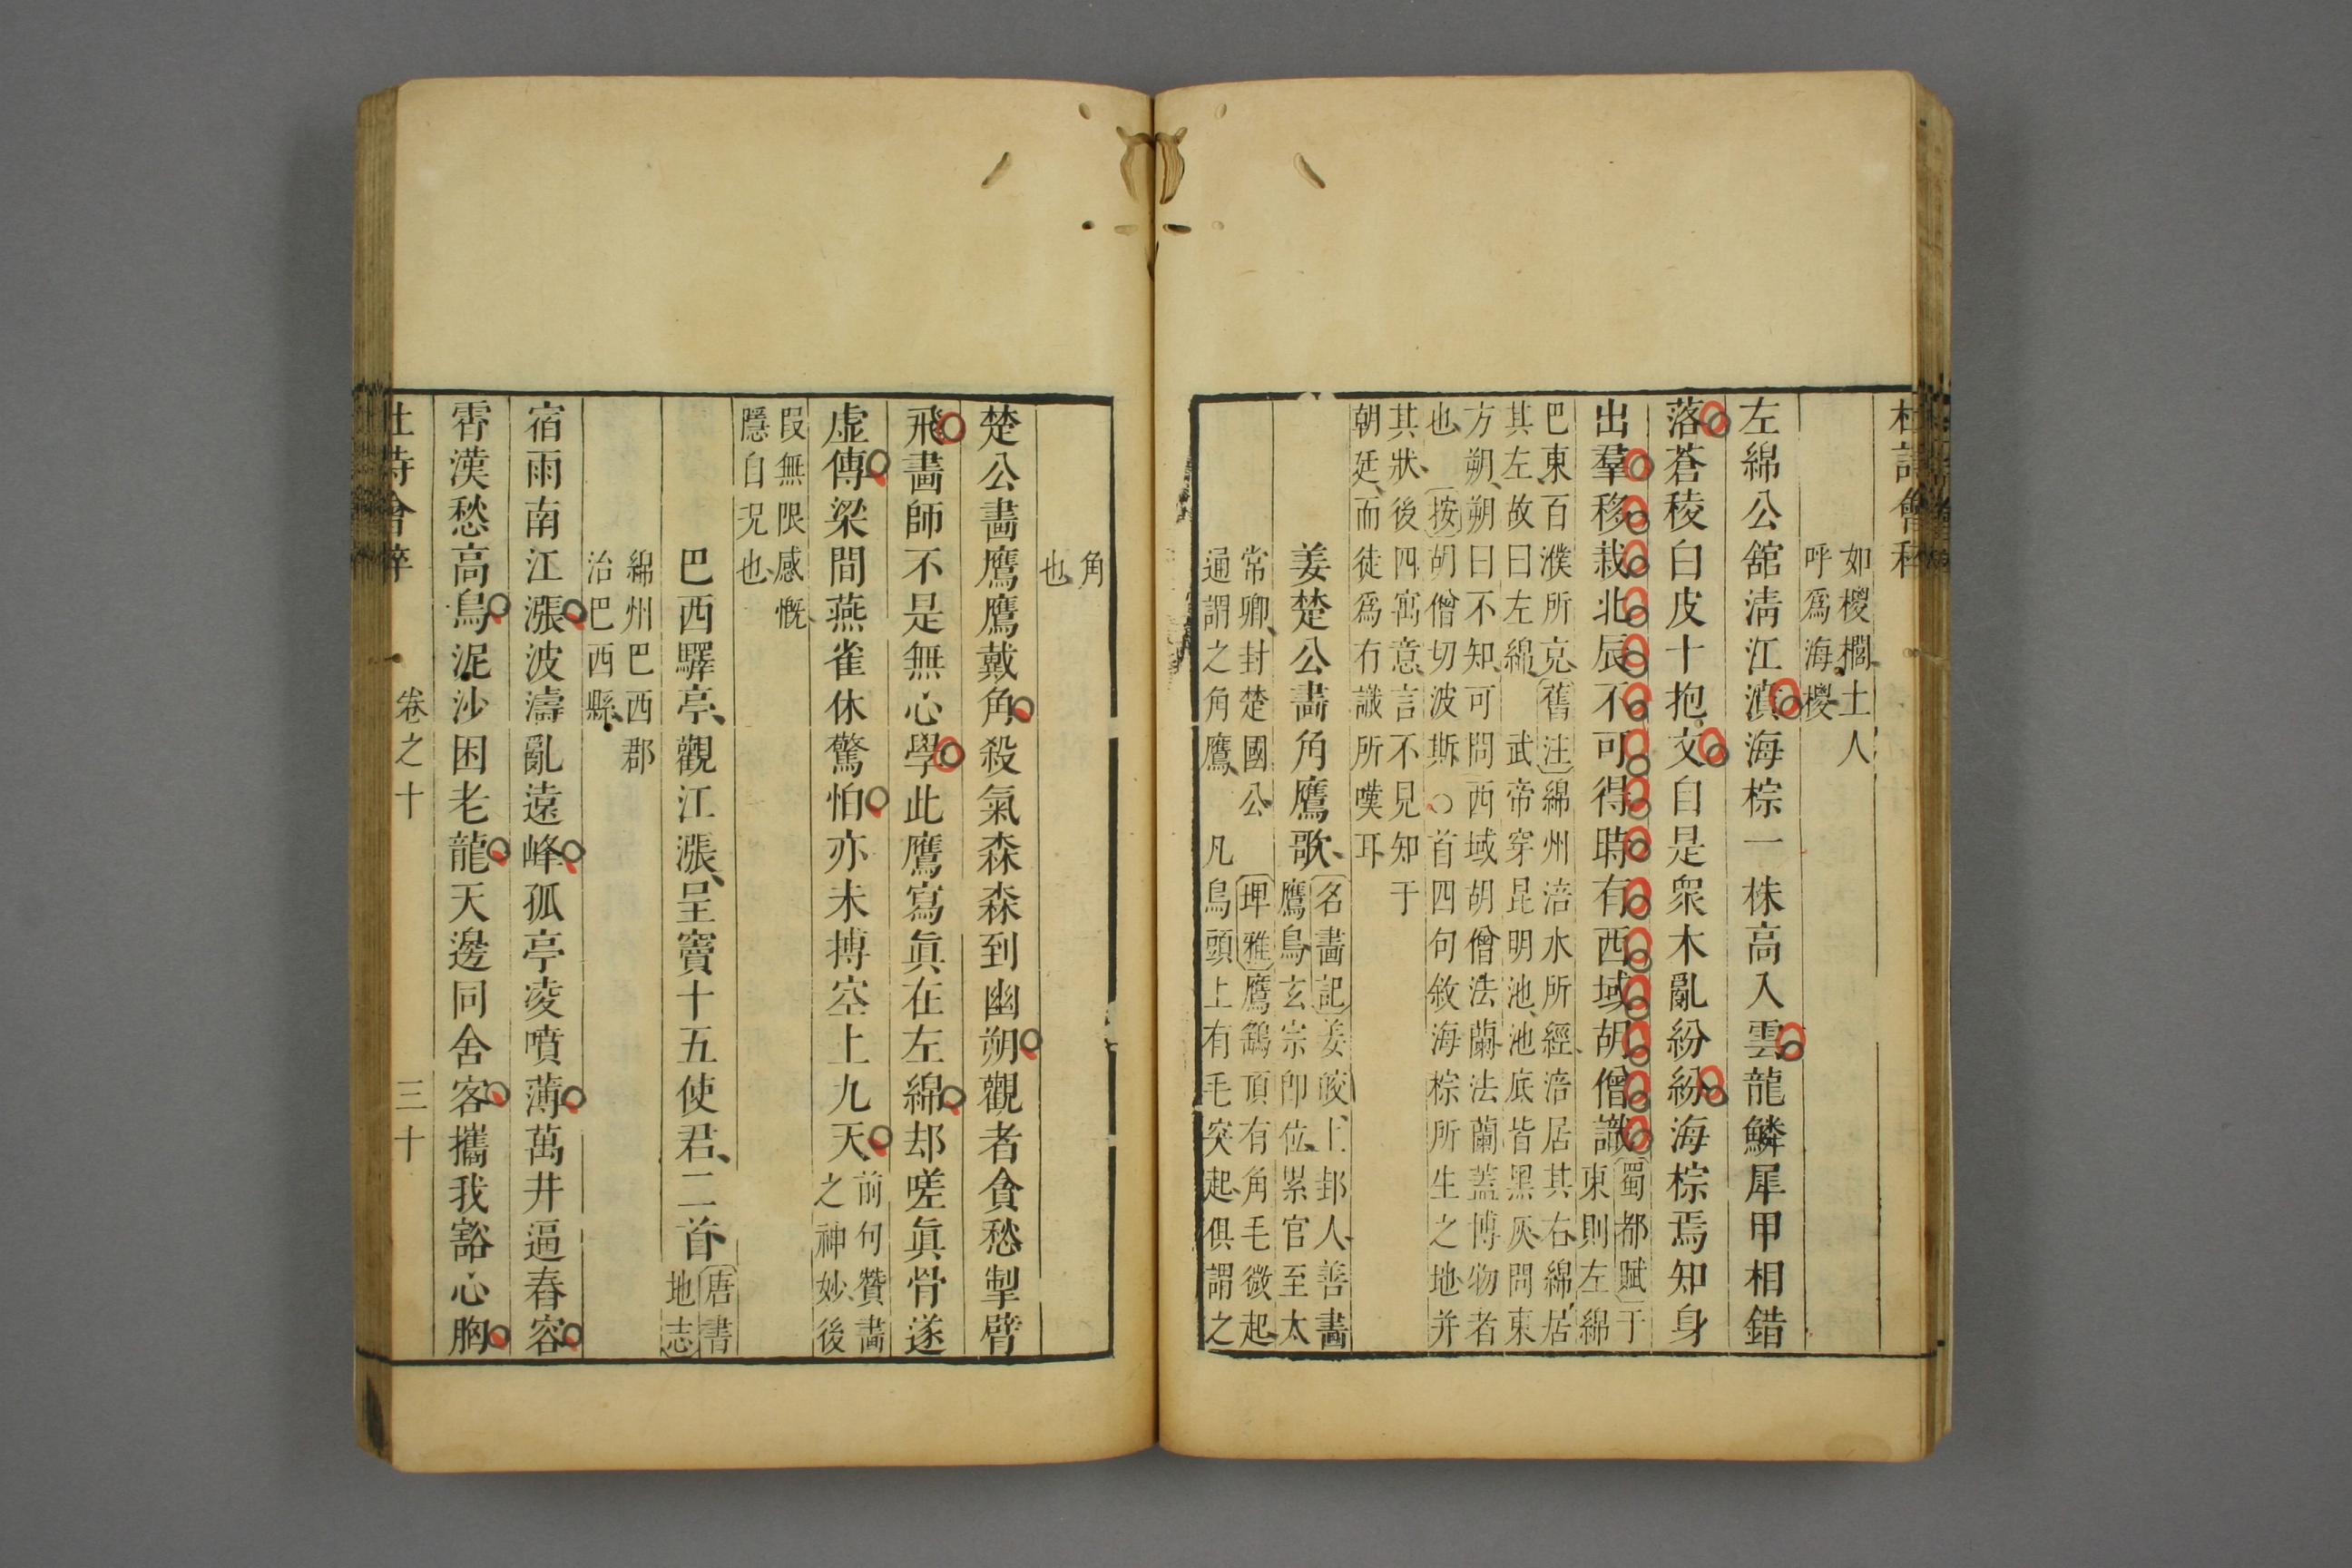 如椶櫚土人
呼爲海椶
左綿公舘淸江濆海棕一株高入雲龍鱗犀甲相錯
落蒼稜白皮十抱文自是衆木亂紛紛海棕焉知身
出羣移栽北辰不可得時有西域胡僧識蜀都賦于
東則左綿
巴東百濮所充舊注綿州涪水所經涪居其右綿居
其左故曰左綿 武帝穿昆明池池底皆黑灰問東
方朔朔曰不知可問西域胡僧法蘭法蘭蓋博物者
也 按胡僧切波斯○首四句敘海棕所生之地并
其狀後四寓意言不見知于
朝廷而徒爲有識所嘆耳
姜楚公畵角鷹歌名畵記姜皎上邽人善畵
鷹鳥玄宗卽位累官至太
常卿封楚國公 埤雅鷹鷂頂有角毛微起
通謂之角鷹 凡鳥頭上有毛突起俱謂之
角
也
楚公畵鷹鷹戴角殺氣森森到幽朔觀者貪愁掣臂
飛畵師不是無心學此鷹寫眞在左綿却嗟眞骨遂
虛傳梁間燕雀休驚怕亦未摶空上九天前句贊畵
之神妙後
段無限感慨
隱自况也
巴西驛亭觀江漲呈竇十五使君二首唐書
地志
綿州巴西郡
治巴西縣
宿雨南江漲波濤亂遠峰孤亭凌噴薄萬井逼舂容
霄漢愁高鳥泥沙困老龍天邊同舍客攜我豁心胸
卷之十 三十